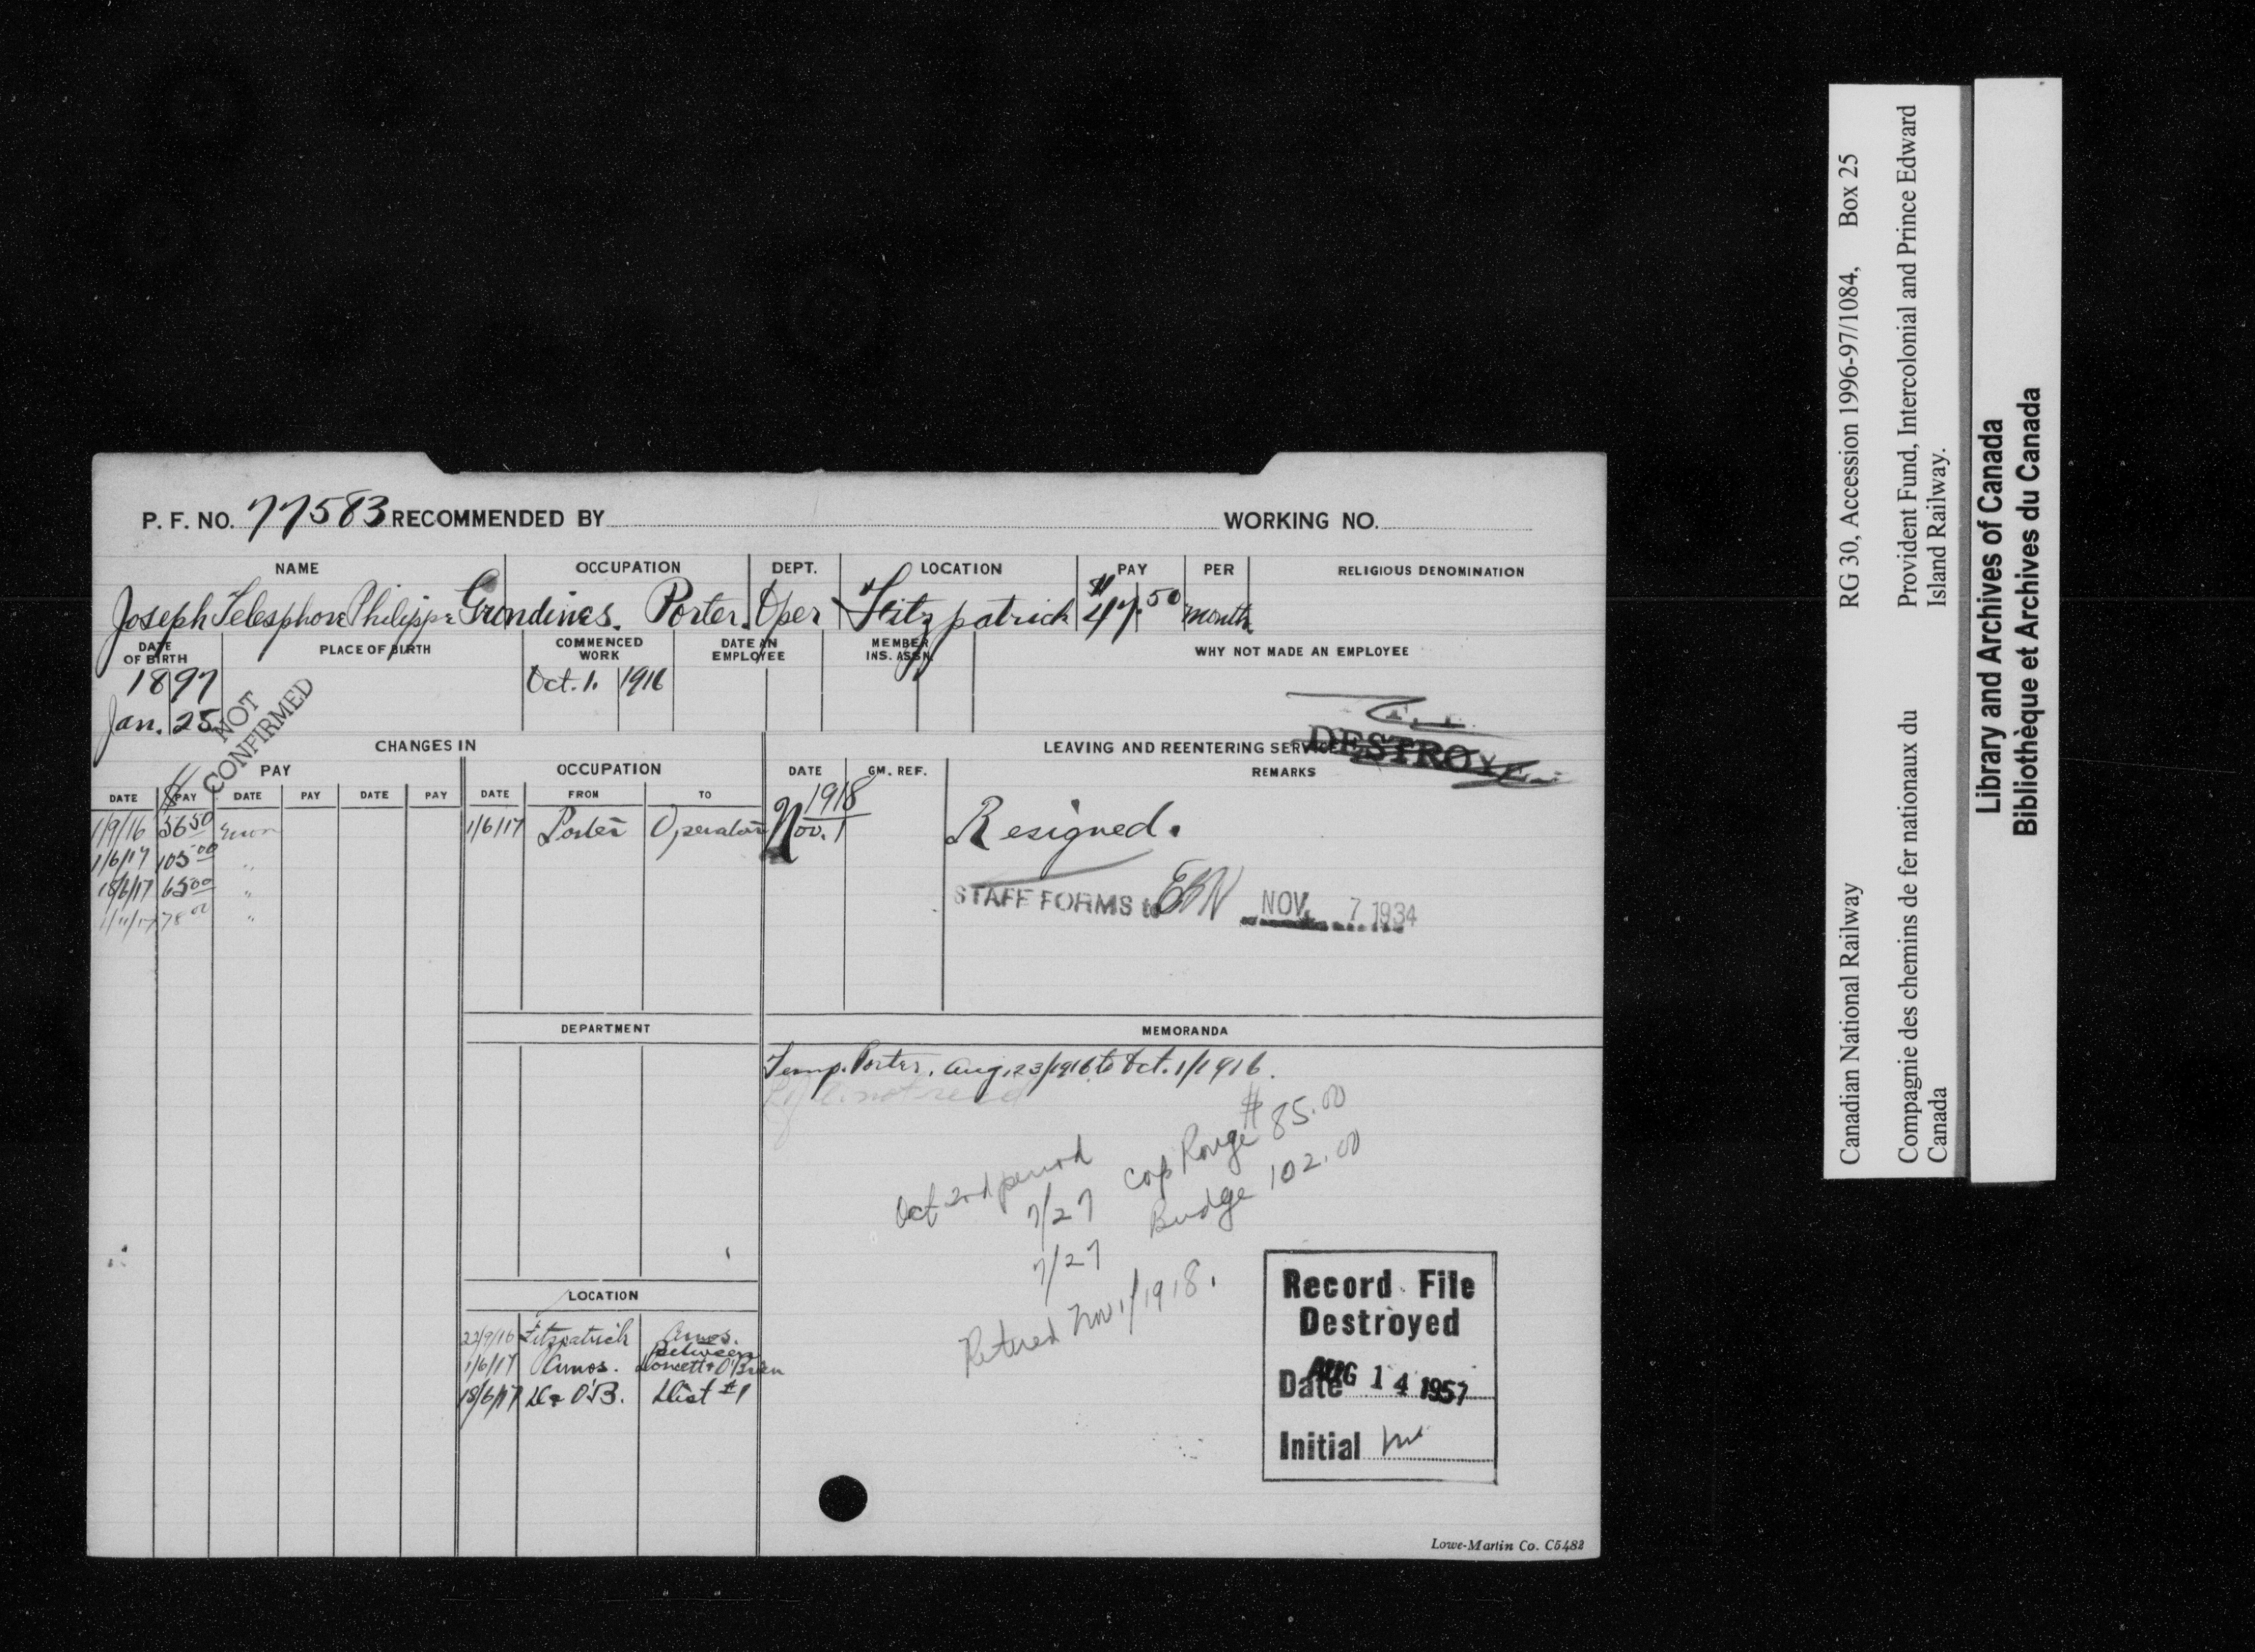 P. F. NO. 77583 RECOMMENDED BY WORKING NO.
NAME OCCUPATION DEPT. LOCATION PAY PER RELIGIOUS DENOMINATION
Joseph Telesphore Philippe Grondines. Porter. Oper Fitzpatrick $47.50 month
DATE OF BIRTH PLACE OF BIRTH COMMENCED WORK DATE AN EMPLOYEE MEMBER INS. ASSN. WHY NOT MADE AN EMPLOYEE
1897 Oct. 1. 1916
Jan. 25
NOT
CONFIRMED
DESTROYE
CHANGES IN LEAVING AND REENTERING SERVICE
PAY OCCUPATION DATE GM. REF. REMARKS
DATE PAY DATE PAY DATE PAY DATE FROM TO
$ 1918
1/9/16 56 50 Error 1/6/17 Porter Operator Nov. 1 Resigned.
1/6/17 105 00 "
18/6/17 65 00 "
1/11/17 78 00 "
STAFF FORMS to NOV. 7 1934
DEPARTMENT MEMORANDA
Temp. Porter. Aug. 23/1916 to Oct. 1/1916.
Oct 2nd period
7/27 Cap Rouge $85.00
7/27 Budge 102.00
Retired Nov 1/1918.
LOCATION
22/9/16 Fitzpatrick Amos.
1/6/17 Amos. Between Doncett & O'Brien
18/6/17 D & O'B. Dist #1
Record File
Destroyed
Date AUG 14 1957
Initial
Lowe-Martin Co. C5482
Canadian National Railway RG 30, Accession 1996-97/1084, Box 25
Compagnie des chemins de fer nationaux du Canada
Provident Fund, Intercolonial and Prince Edward Island Railway.
Library and Archives of Canada
Bibliothèque et Archives du Canada